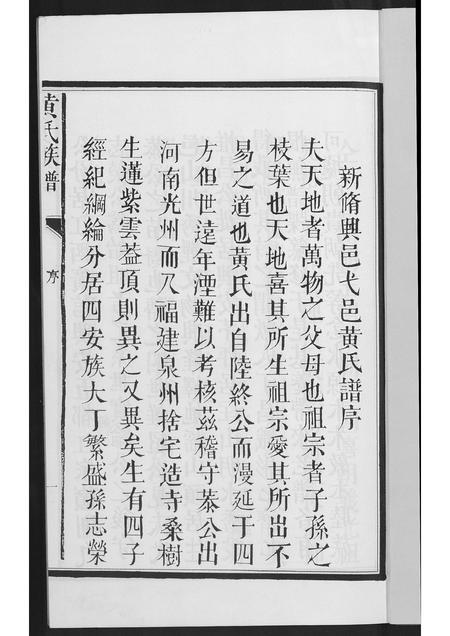 新脩興邑弋邑黄氏譜序
夫天地者萬物之父母也祖宗者子孫之
枝葉也天地喜其所生祖宗愛其所出不
易之道也黄氏出自陸終公而漫延于四
方但世遠年湮難以考核茲稽守恭公出
河南光州而入福建泉州捨宅造寺桑樹
生蓮紫雲葢頂則異之又異矣生有四子
經紀綱綸分居四安族大丁繁盛孫志榮
黄氏族普
序
一